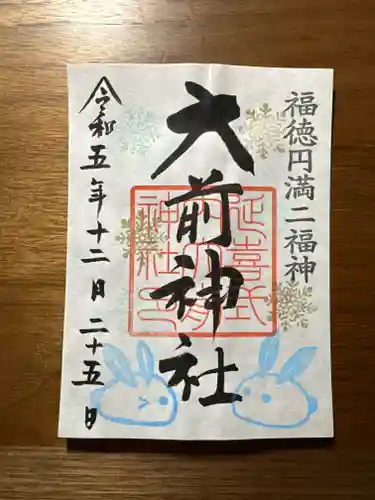 福徳円満二福神
大前神社
延喜式
神社
令和五年十二月二十五日